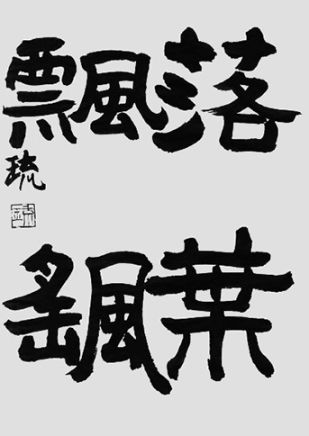 落葉
飄颻
琉